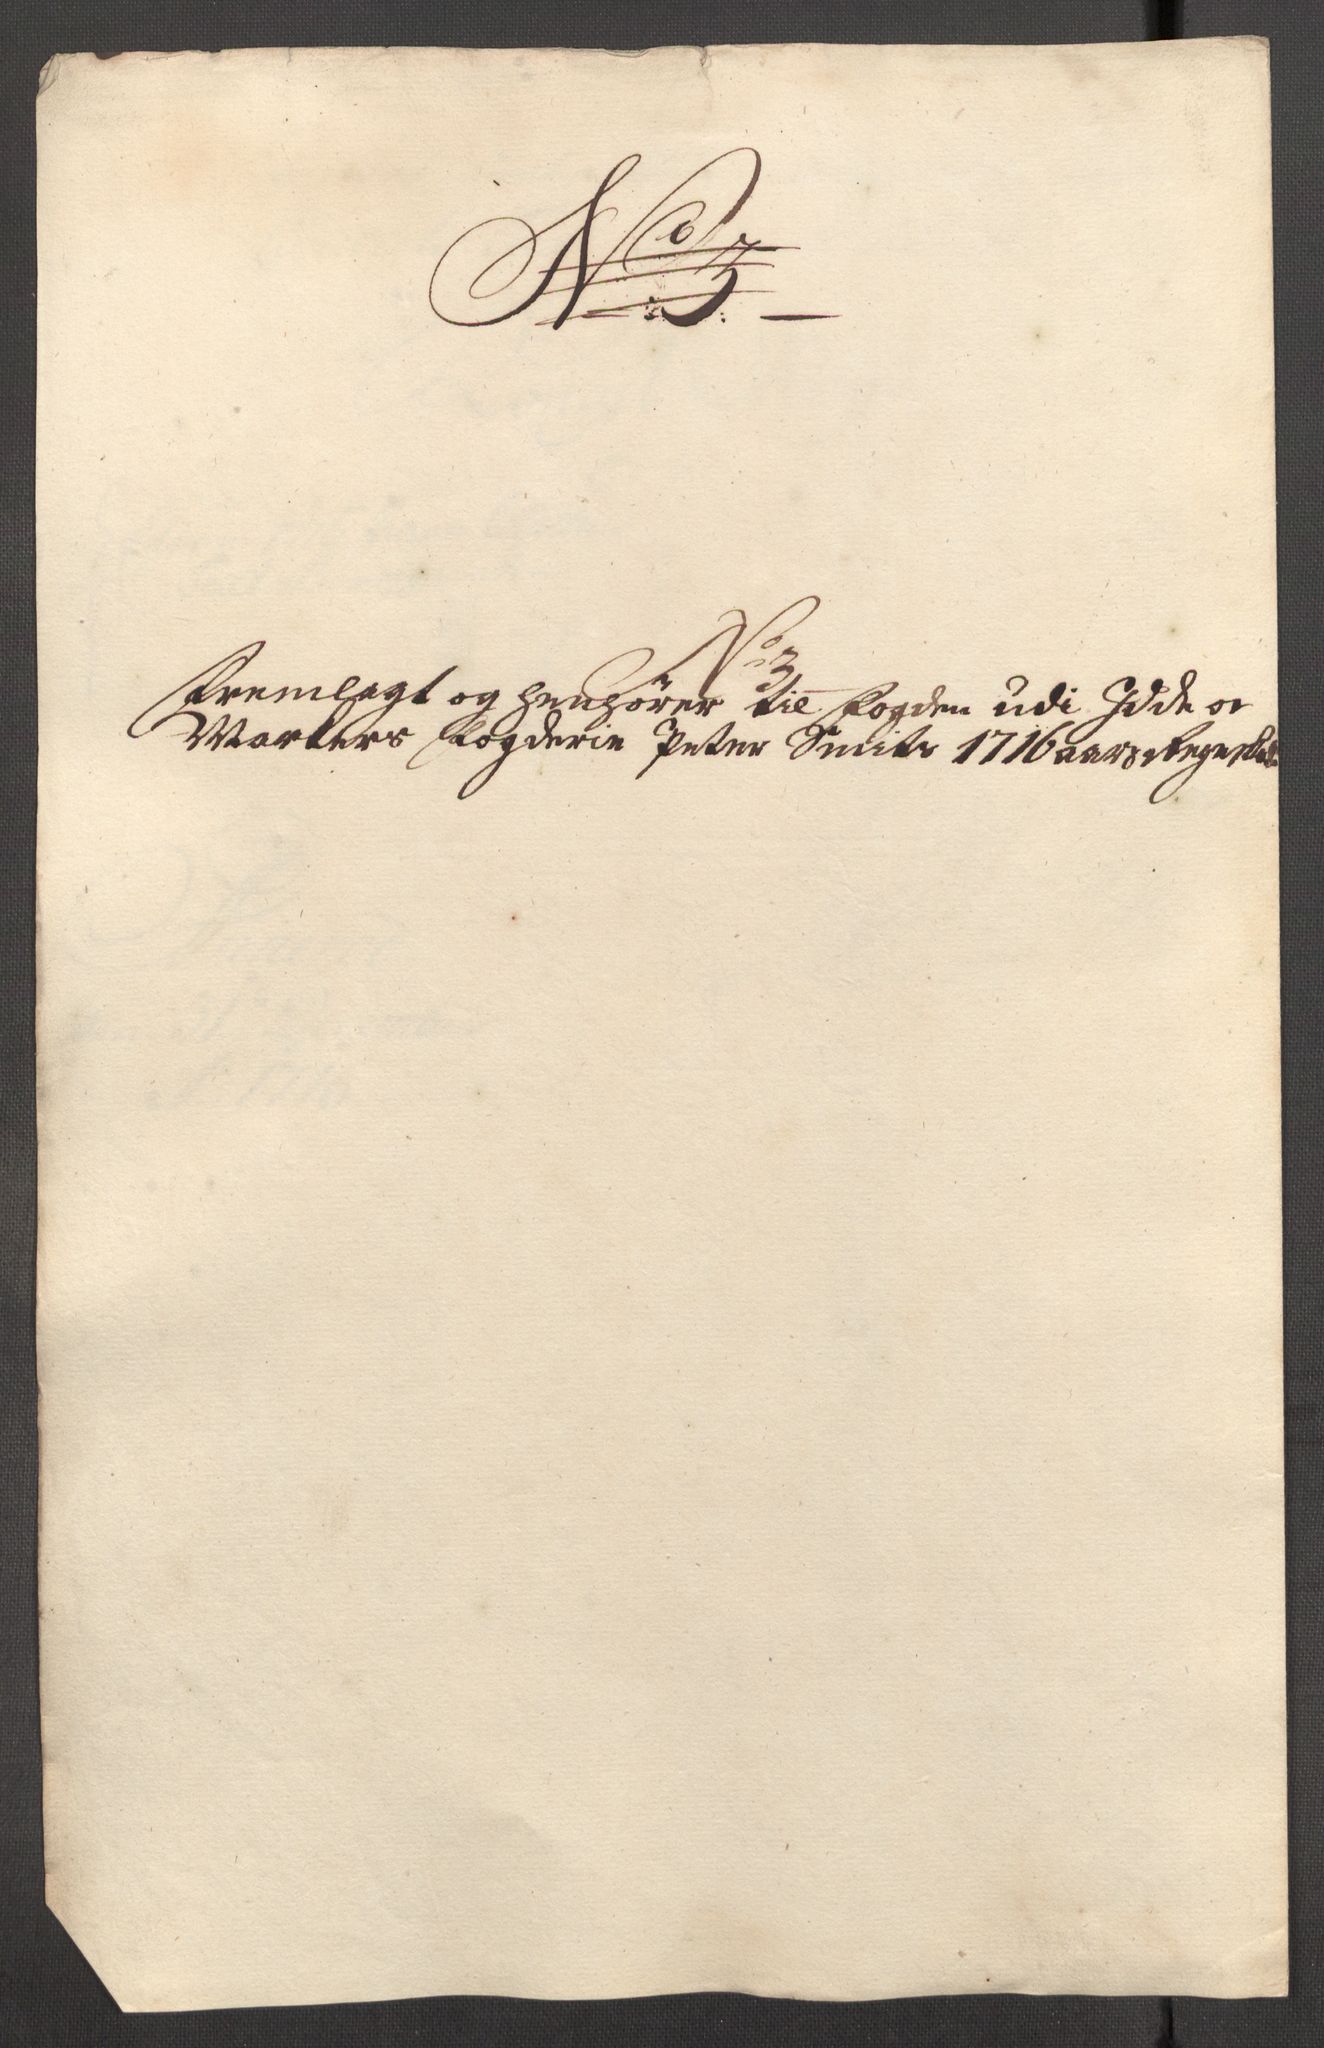 No 3
No 3
Fremlagt og henhörer til Fogden udi Idde og
Markers Fogderie Peter Smits 1716 aars Regnskab